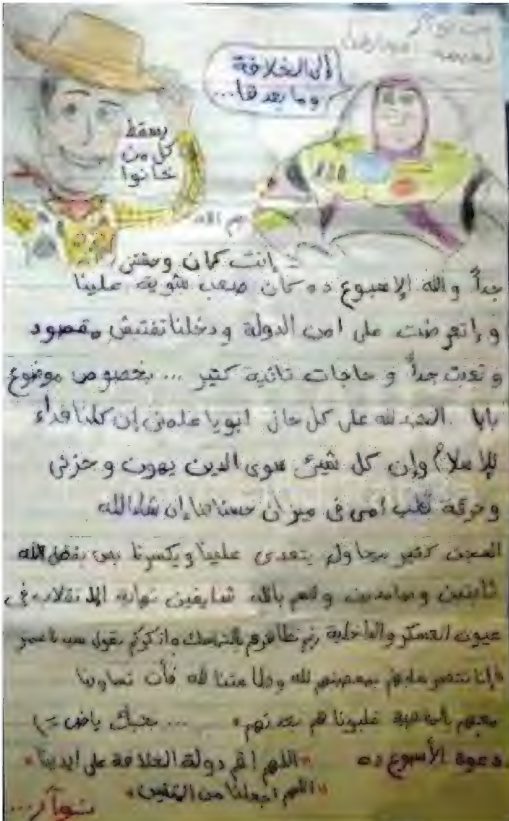 إلى الخلافة
وما بعدها...
يسقط
كل من
خانوا
إنت كمان وحشتني
جداً والله الإسبوع ده كان صعب شوية علينا
و إتعرضت على امن الدولة و دخلنا تفتيش مقصود
و تعبت جداً و حاجات تانية كتير ... بخصوص موضوع
بابا الحمد لله على كل حال ابويا علمني إن كلنا فداء
للإسلام وإن كل شيئ سوى الدين يهون و حزني
وحرقة قلب أمي في ميزان حسناتنا إن شاء الله
السجن كتير بيحاول يتعدى علينا ويكسرنا بس بفضل الله
ثابتين و صامدين وقسم بالله شايفين نهاية الإنقلاب في
عيون العسكر والداخلية رغم تظاهرهم بالتماسك و اذكركم بقول سيدنا عمر
«إنا ننتصر عليهم بمعصيتهم لله وطاعتنا لله فأن تساوينا
معهم بالمعصية غلبونا هم بعدتهم» ... بحبك ياض
دعوة الأسبوع ده "اللهم اقم دولة الخلافة على ايدينا"
"اللهم اجعلنا من المتقين"